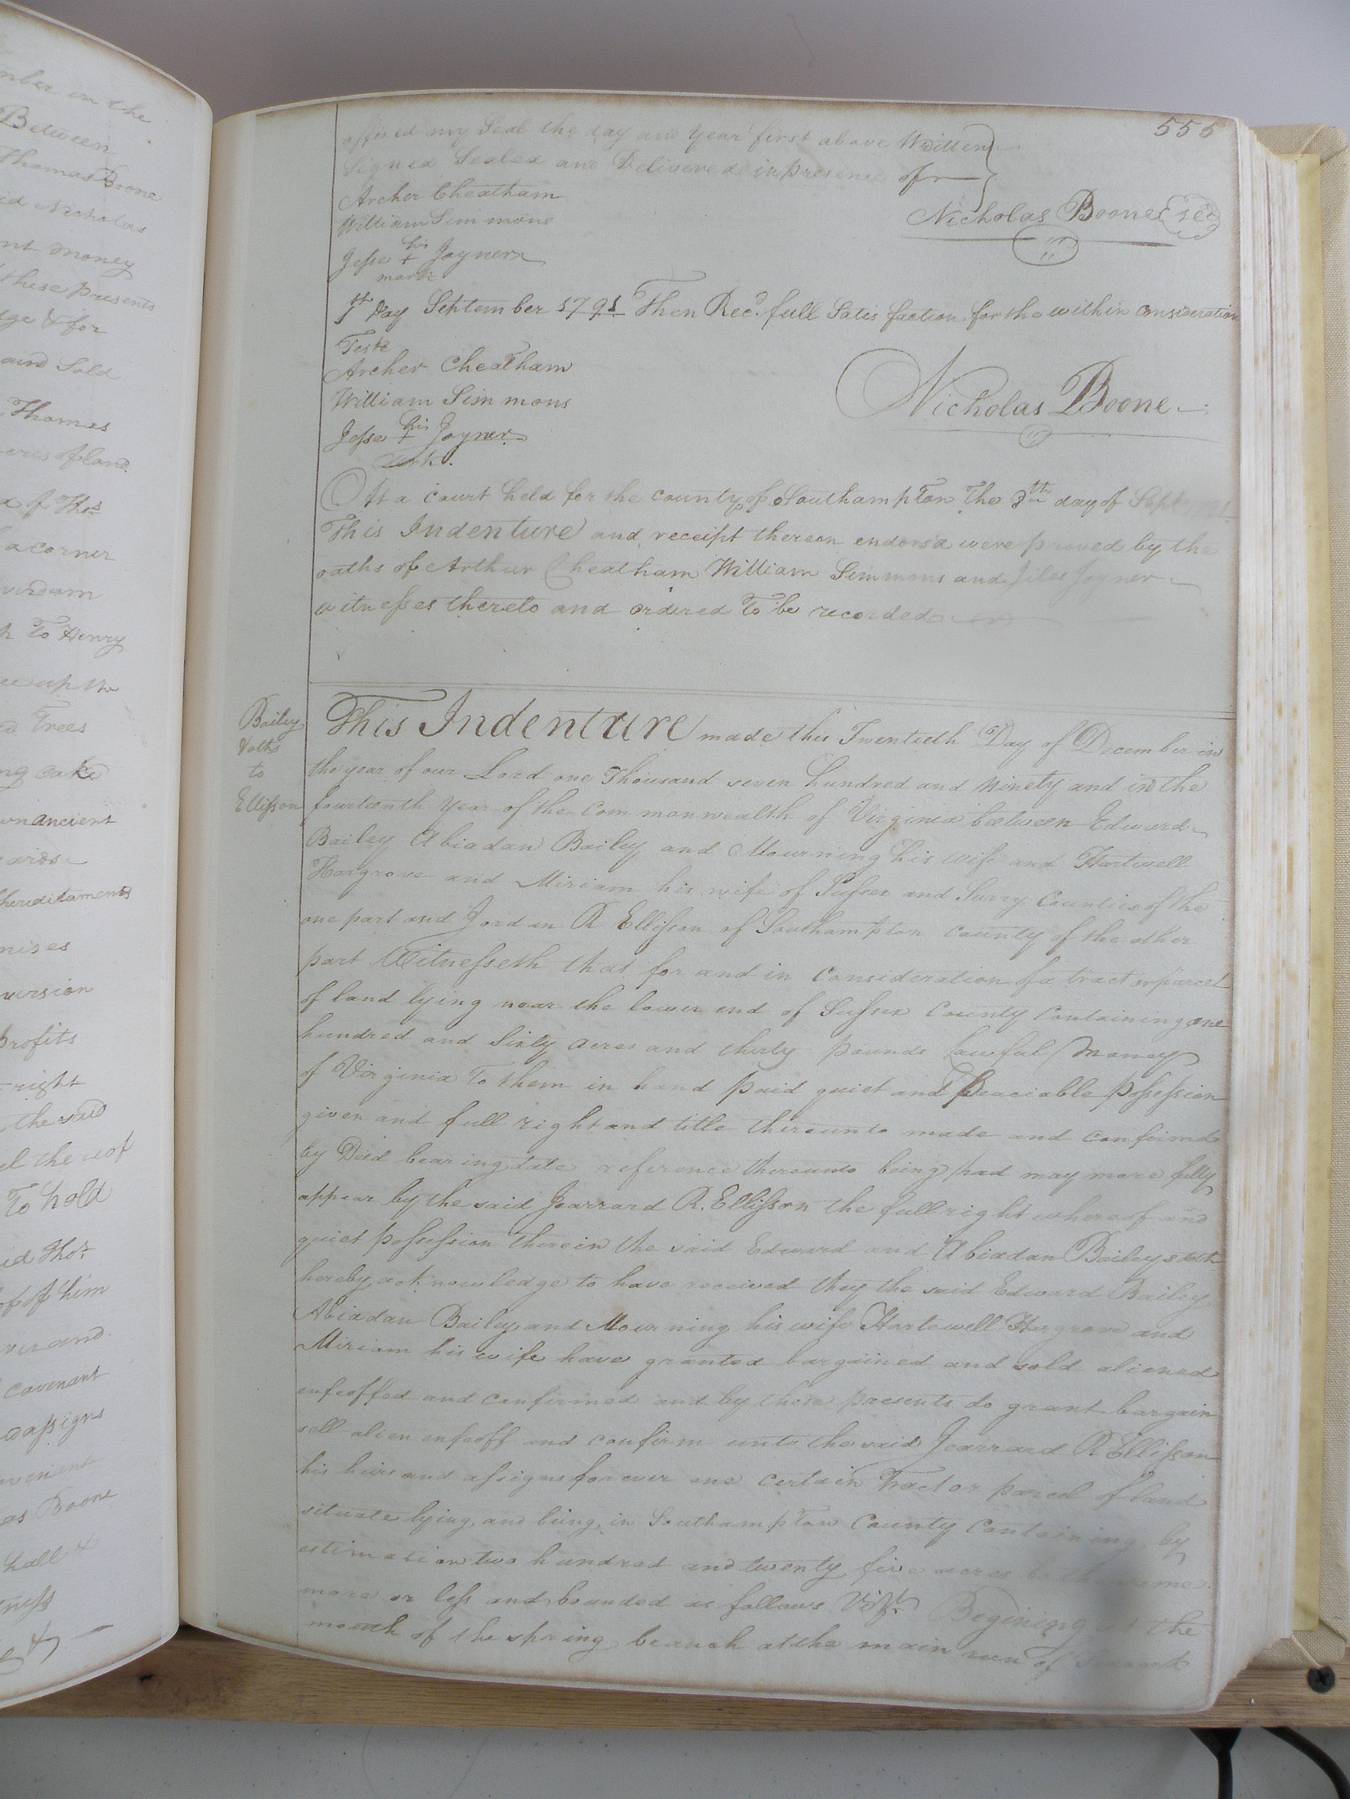 mber in the
Between
Thomas Boone
id Nicholas
nt money
these presents
dge & for
and Sold
Thomas
acres of land
d of Thos
a corner
h To Henry
up the
Trees
ng oake
an ancient
hereditaments
mises
version
Profits
right
the said
el thereof
To hold
id Thos
of of him
ver and
covenant
assigns
as Boone
hall &
555
affixed my Seal the day and Year first above Written
Signed Sealed and Delivered in presence of
Archer Cheatham
William Simmons
Nicholas Boone
Jesse his + Joyner
mark
1st Day September 1791 Then Recd full Satisfaction for the within Consideration
Teste
Archer Cheatham
William Simmons
Nicholas Boone
Jesse his + Joyner
At a court held for the county of Southampton the 8th day of Sept
This Indenture and receipt thereon endorsd were proved by the
oaths of Arthur Cheatham William Simmons and Jiles Joyner
witnesses thereto and ordered To be recorded
Bailey
& oths
to
Ellisson
This Indenture made this Twentieth Day of December in
the year of our Lord one Thousand seven hundred and Ninety and in the
fourteenth Year of the Commonwealth of Virginia between Edward
Bailey Abiadan Bailey and Mourning his wife and Hartwell
Hargrove and Miriam his wife of Sussex and Surry Counties of the
one part and Jordan R Ellisson of Southampton County of the other
part Witnesseth that for and in Consideration of a tract or parcel
of land lying near the lower end of Sussex County Containing one
hundred and Sixty acres and thirty pounds Lawful Money
of Virginia To them in hand paid quiet and Peaciable possession
given and full right and title thereunto made and confirmd
by Deed bearing date reference thereunto being had may more fully
appear by the said Jearrard R. Ellisson the full right whereof and
quiet possession therein the said Edward and Abiadan Baileys doth
hereby acknowledge to have received they the said Edward Bailey
Abiadan Bailey and Mourning his wife Hartwell Hargrove and
Miriam his wife have granted bargained and sold aliened
enfeoffed and confirmed and by these presents do grant bargain
sell alien enfeoff and confirm unto the said Jearrard R Ellisson
his heirs and assigns forever one certain Tract or parcel of land
situate lying and being in Southampton County Containing by
estimation two hundred and twenty five acres be the same
more or less and bounded as follows Vizt. Begining at the
mouth of the spring branch at the main run of